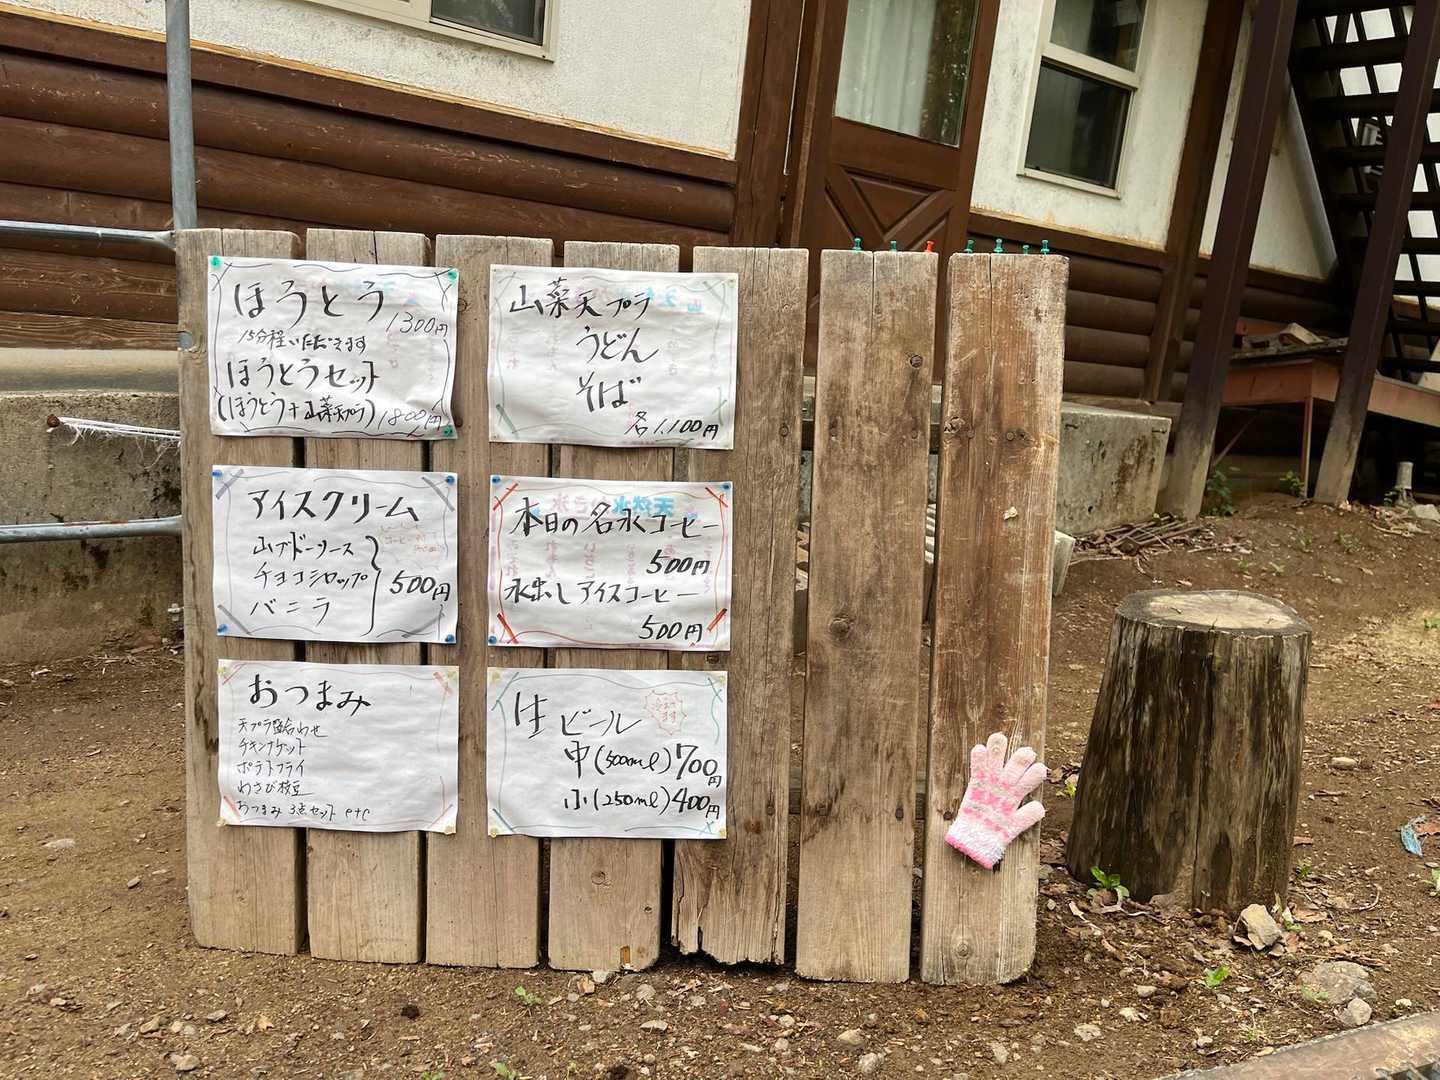 ほうとう
1300円
15分程いただきます
ほうとうセット
(ほうとう+山菜天プラ) 1800円
山菜天プラ
うどん
そば
各 1,100円
アイスクリーム
山ブドーソース
チョコシロップ
バニラ
500円
本日の名水コーヒー
500円
水出しアイスコーヒー
500円
おつまみ
天プラ盛合わせ
チキンナゲット
ポテトフライ
わさび枝豆
おつまみ 3点セット etc
生ビール
冷えてます
中(500ml)700円
小(250ml)400円